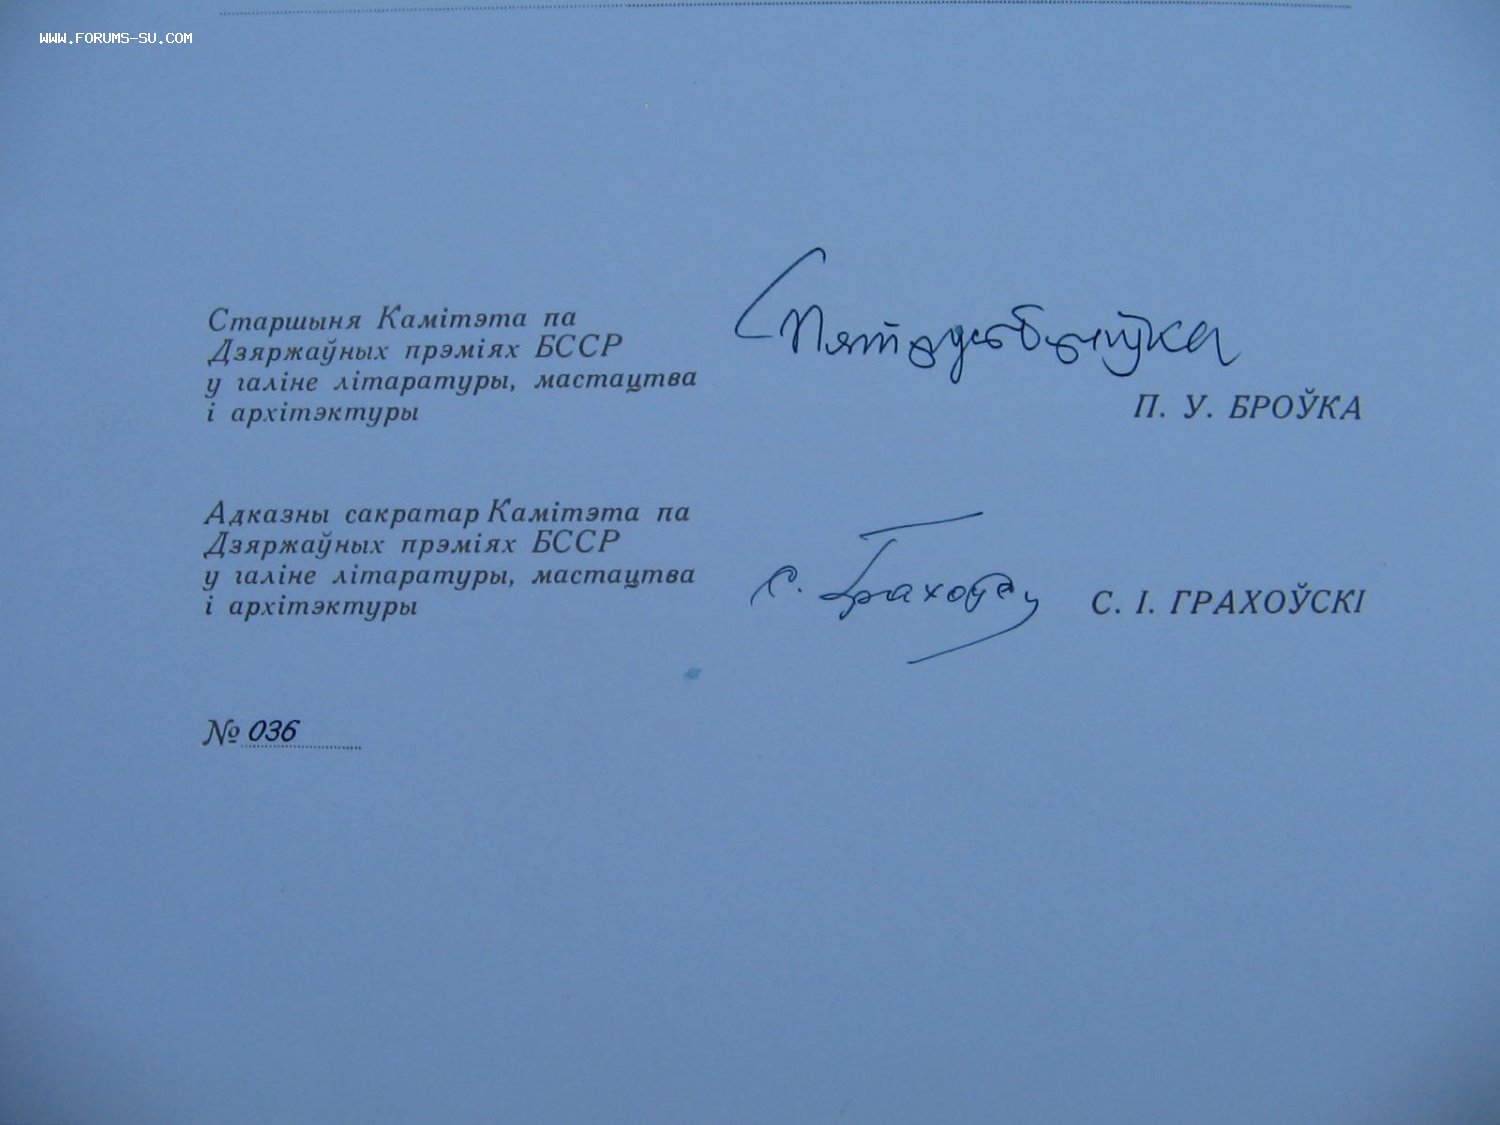 WWW.FORUMS-SU.COM
Старшыня Камітэта па
Дзяржаўных прэміях БССР
у галіне літаратуры, мастацтва
і архітэктуры
Пятрусь Броўка
П. У. БРОЎКА
Адказны сакратар Камітэта па
Дзяржаўных прэміях БССР
у галіне літаратуры, мастацтва
і архітэктуры
С. І. ГРАХОЎСКІ
№ 036